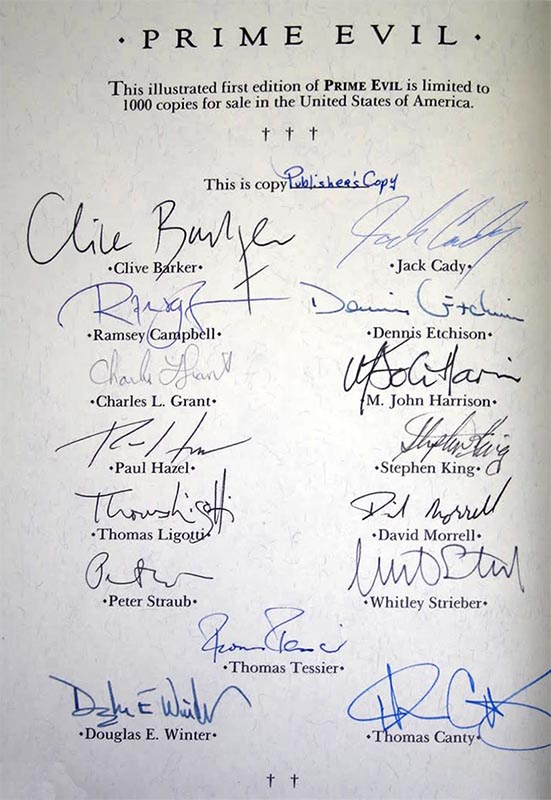 · PRIME EVIL ·
This illustrated first edition of PRIME EVIL is limited to
1000 copies for sale in the United States of America.
† † †
This is copy Publisher's Copy
Clive Barker Jack Cady
·Clive Barker· ·Jack Cady·
Dennis Etchison
·Ramsey Campbell· ·Dennis Etchison·
Charles L Grant
·Charles L. Grant· ·M. John Harrison·
Stephen King
·Paul Hazel· ·Stephen King·
Thomas Ligotti David Morrell
·Thomas Ligotti· ·David Morrell·
·Peter Straub· ·Whitley Strieber·
Thomas Tessier
·Thomas Tessier·
Douglas E Winter
·Douglas E. Winter· ·Thomas Canty·
† †